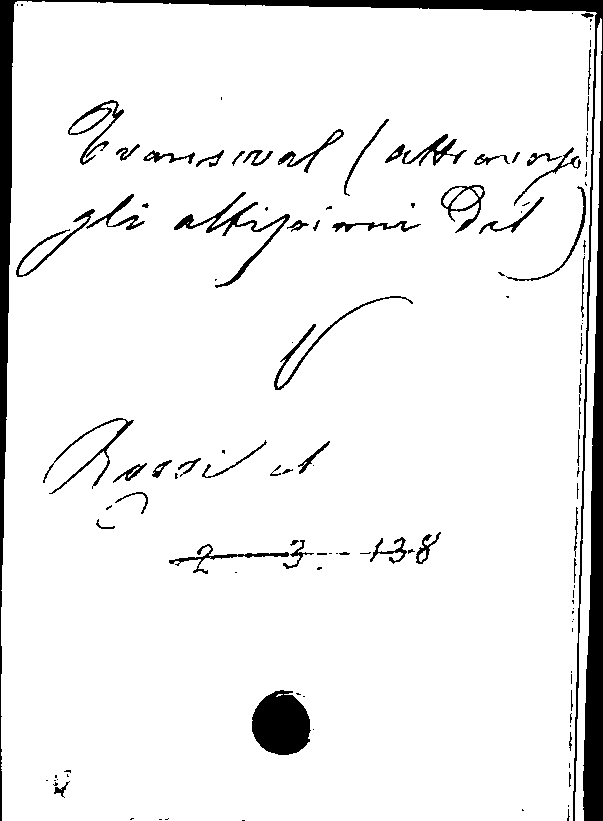 Transvaal (attraverso
gli altipiani del)
V
Rossi A
2 3. 138